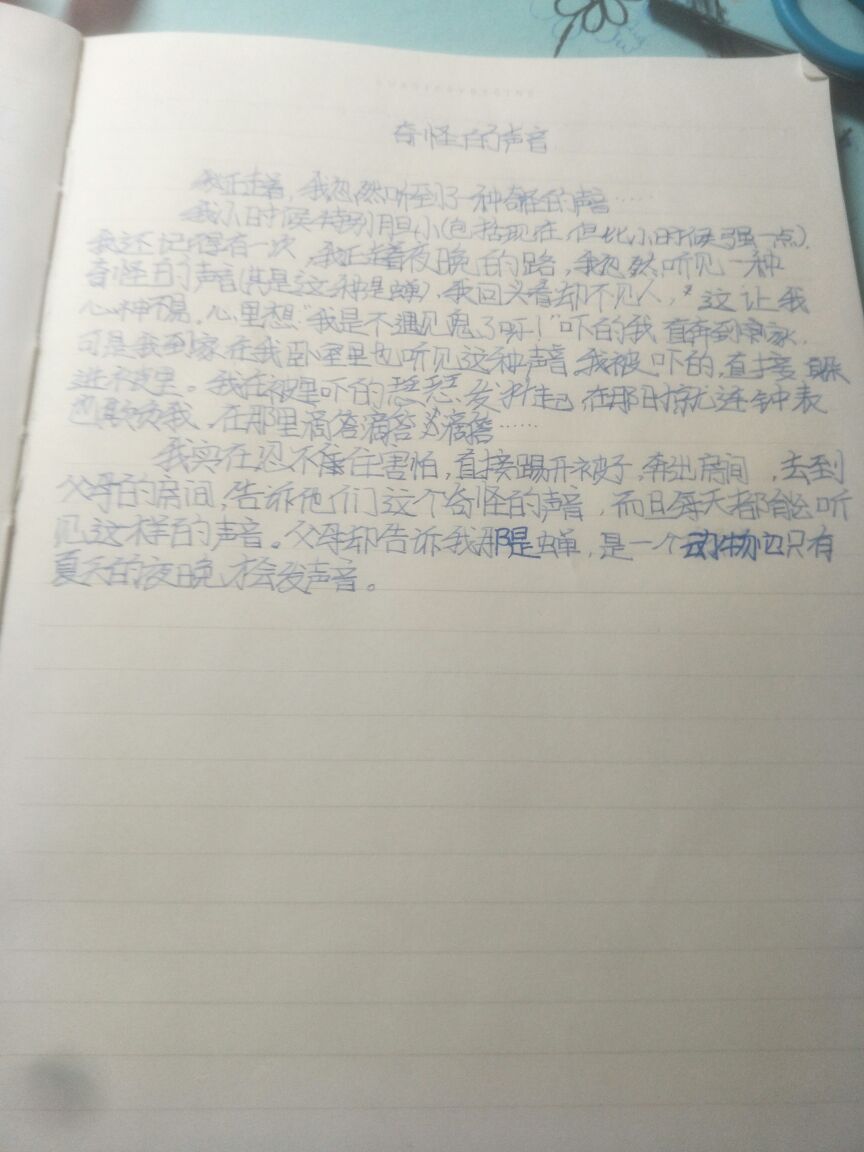 奇怪的声音
我正走着，我忽然听到了一种奇怪的声音……
我小时候特别胆小(包括现在,但比小时候强一点).
我还记得有一次,我正走着夜晚的路,我忽然听见一种
奇怪的声音(其是这种是蝉),我回头看却不见人,这让我
心神不,心里想"我是不遇见鬼了呀!"吓的我直奔到家,
可是我到家在我卧室里也听见这种声音,我被吓的,直接躲
进被里。我在被里吓的发抖,在那时就连钟表
也欺负我,在那里滴答滴答滴答……
我实在忍不住害怕,直接踢开被子,奔出房间,去到
父母的房间,告诉他们这个奇怪的声音,而且每天都能听
见这样的声音。父母却告诉我那是蝉,是一个动物它只有
夏天的夜晚才会发声音。